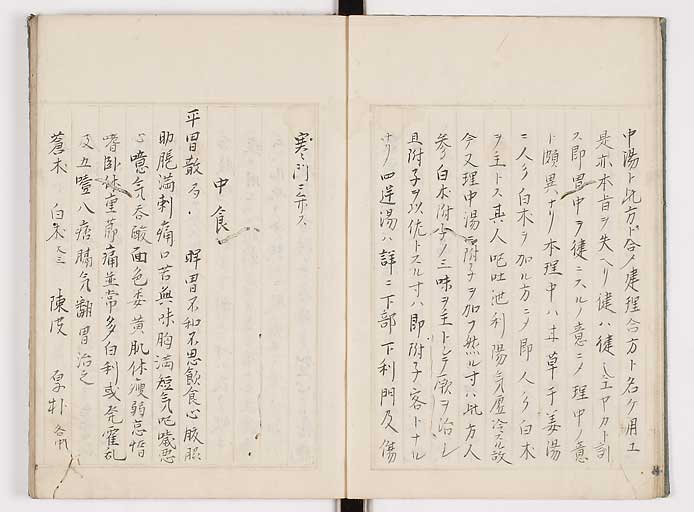 中湯ト此方ト合メ建理合方ト名ケ用エ
是亦本旨ヲ失ヘリ建ハ徒シエヤカト訓
ス即胃中ヲ建ニスルノ意ニメ理中ノ意
ト頗異ナリ本理中ハ甘草干姜湯
ニ人参白朮ヲ加ル方ニメ即人参白朮
ヲ主トス其人吐池利陽气虚冷スル故
今又理中湯附子ヲ加フ然ル寸ハ此方人
参白朮附子ノ三味ヲ主トシテ ヲ治シ
且附子ヲ以佐トスル寸ハ即附子客トナル
ナリ四逆湯ハ詳ニ下部下利門及傷
寒門ニ示ス
中食
平胃散 局 脾胃不和不思飲食心腹
助脹満刺痛口苦無味胸満短气嘔噦悪
心噫气呑酸面色委黄肌体瘦弱怠惰
嗜臥体重節痛並常多自利或発霍乱
及五噎八痞膈气翻胃治之
蒼朮 白朮 陳皮 厚朴